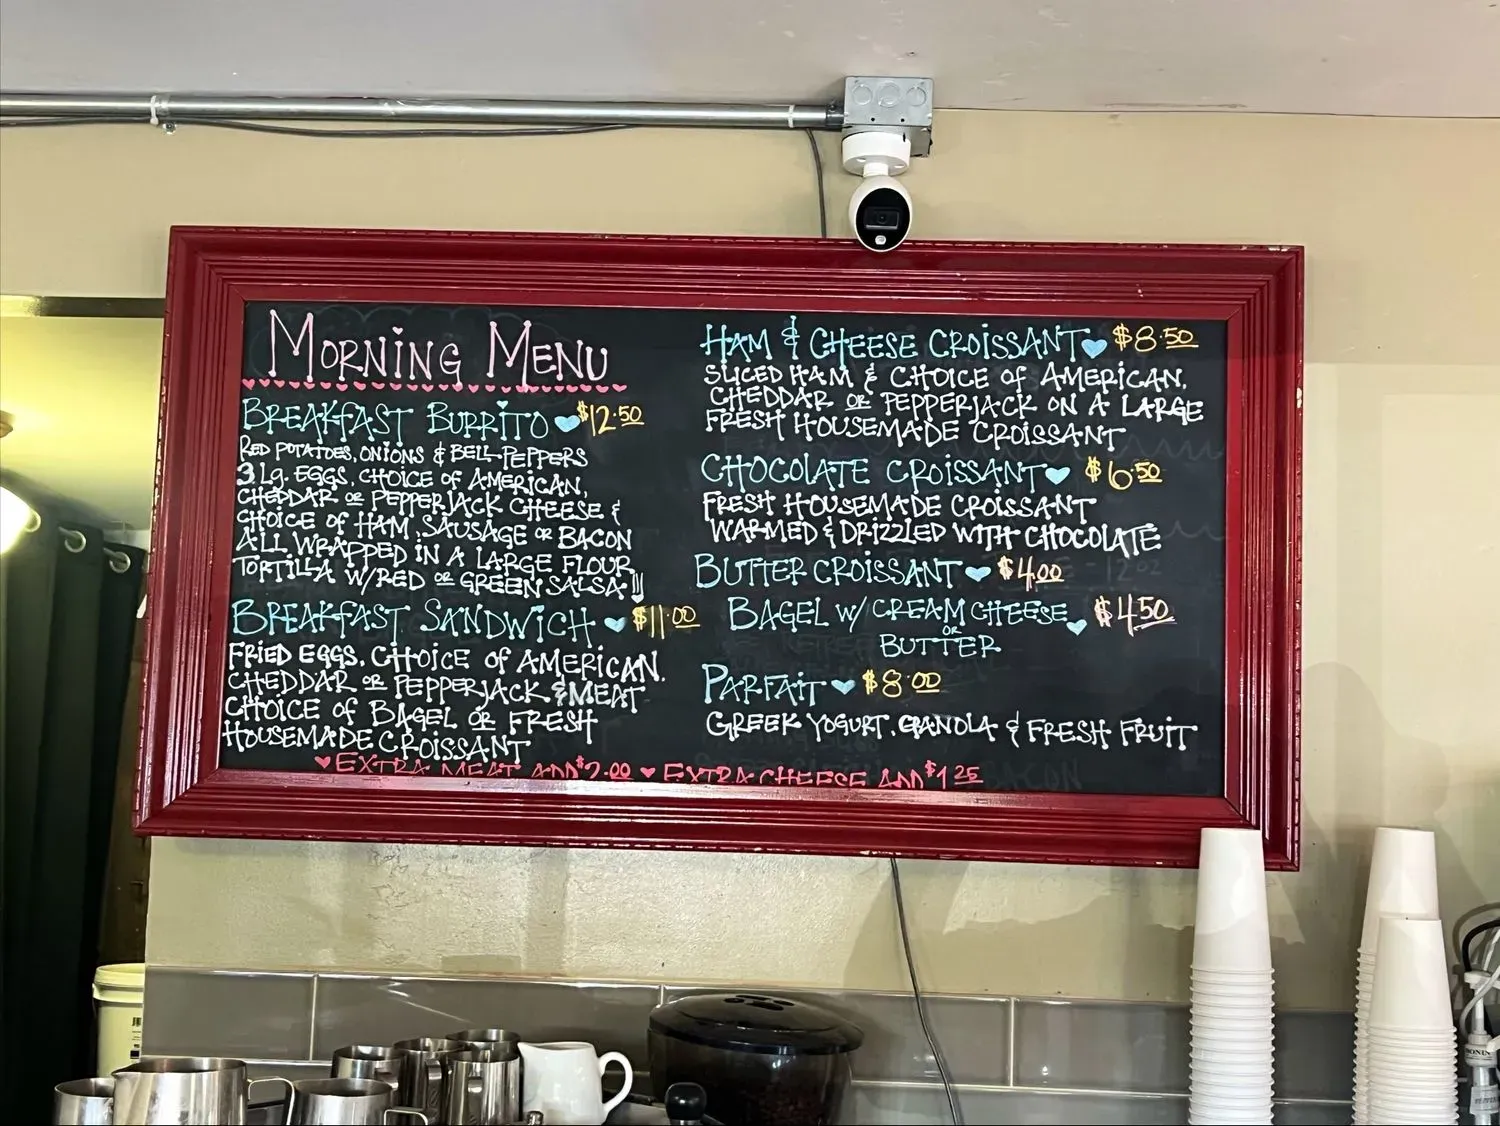 MORNING MENU
BREAKFAST BURRITO $12.50
RED POTATOES, ONIONS & BELL PEPPERS
3 Lg. EGGS, CHOICE OF AMERICAN,
CHEDDAR OR PEPPERJACK CHEESE &
CHOICE OF HAM, SAUSAGE OR BACON
ALL WRAPPED IN A LARGE FLOUR
TORTILLA W/RED OR GREEN SALSA!!
BREAKFAST SANDWICH $11.00
FRIED EGGS, CHOICE OF AMERICAN,
CHEDDAR OR PEPPERJACK & MEAT
CHOICE OF BAGEL OR FRESH
HOUSEMADE CROISSANT
EXTRA MEAT ADD $2.00 EXTRA CHEESE ADD $1.25
HAM & CHEESE CROISSANT $8.50
SLICED HAM & CHOICE OF AMERICAN,
CHEDDAR OR PEPPERJACK ON A LARGE
FRESH HOUSEMADE CROISSANT
CHOCOLATE CROISSANT $6.50
FRESH HOUSEMADE CROISSANT
WARMED & DRIZZLED WITH CHOCOLATE
BUTTER CROISSANT $4.00
BAGEL W/ CREAM CHEESE $4.50
OR
BUTTER
PARFAIT $8.00
GREEK YOGURT, GRANOLA & FRESH FRUIT